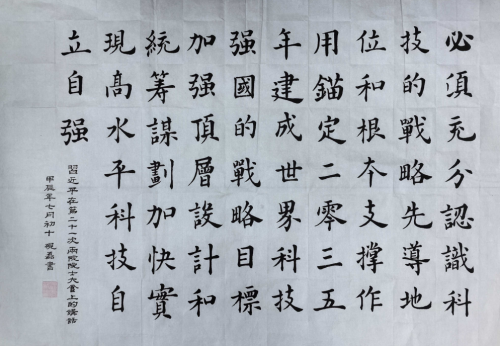 必須充分認識科
技的戰略先導地
位和根本支撐作
用錨定二零三五
年建成世界科技
强國的戰略目標
加强頂層設計和
統籌謀劃加快實
現高水平科技自
立自强
習近平在第二十一次兩院院士大會上的講話
甲辰年七月初十 磊書